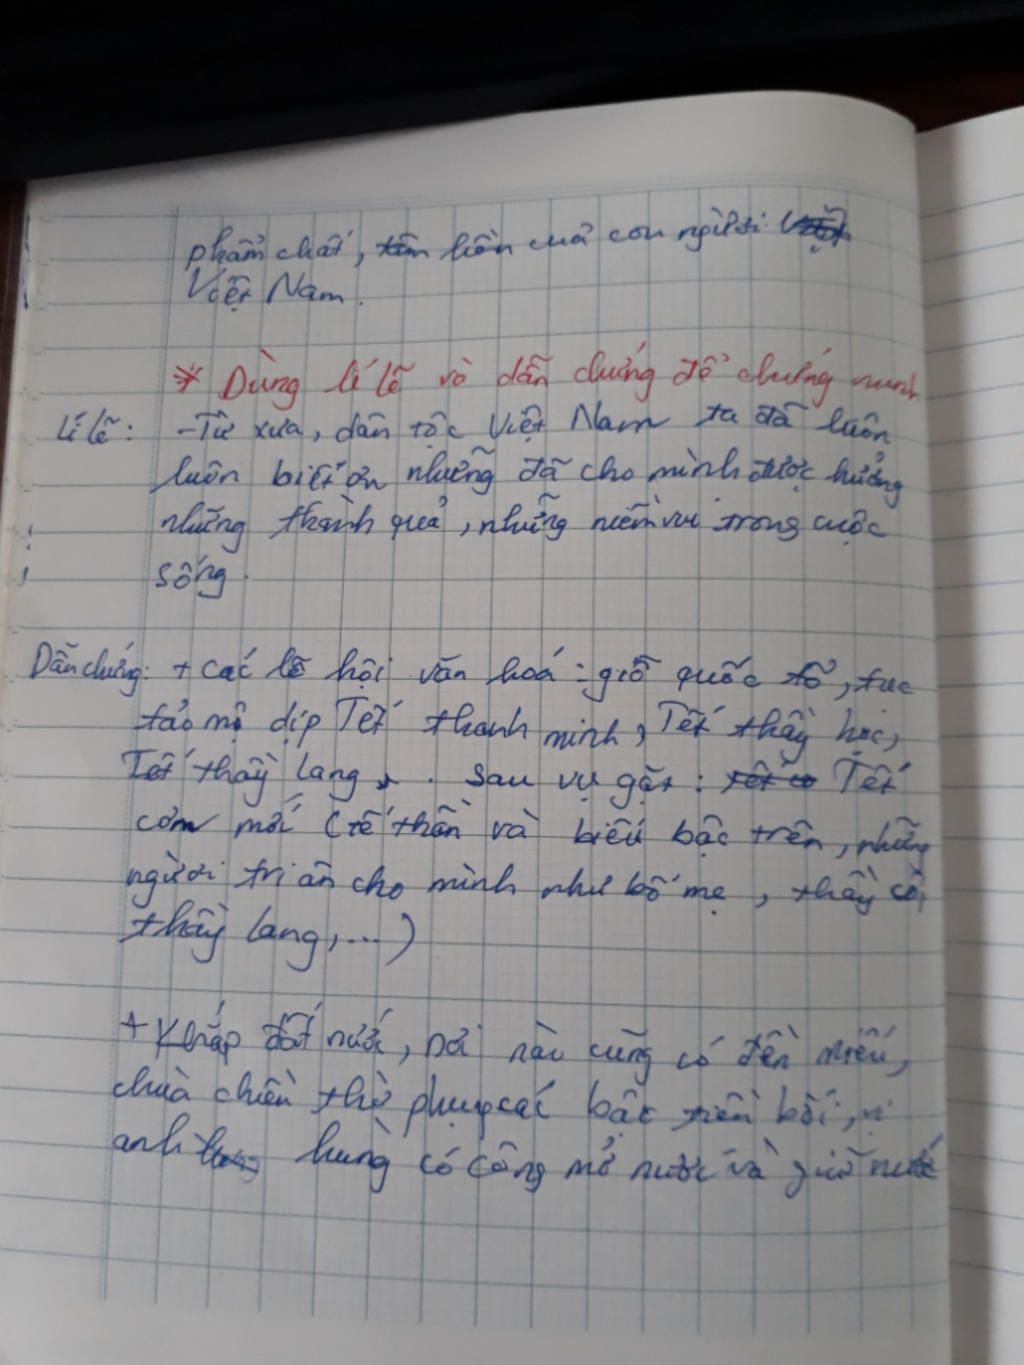 phẩm chất, liền của con người
Việt Nam.
* Dùng lí lẽ và dẫn chứng để chứng minh
Lí lẽ: - Từ xưa, dân tộc Việt Nam ta đã luôn
luôn biết ơn những đã cho mình được hưởng
những thành quả, những niềm vui trong cuộc
sống.
Dẫn chứng: + Các lễ hội văn hoá: giỗ quốc tổ, tục
tảo mộ dịp Tết thanh minh, Tết thầy học,
Tết thầy lang, .. Sau vụ gặt: Tết
cơm mới (tế thần và biếu bậc trên, những
người tri ân cho mình như bố mẹ, thầy cô,
thầy lang,...)
+ Khắp đất nước, nơi nào cũng có đền miếu,
chùa chiền thờ phụng các bậc tiền bối, vị
anh hùng có công mở nước và giữ nước